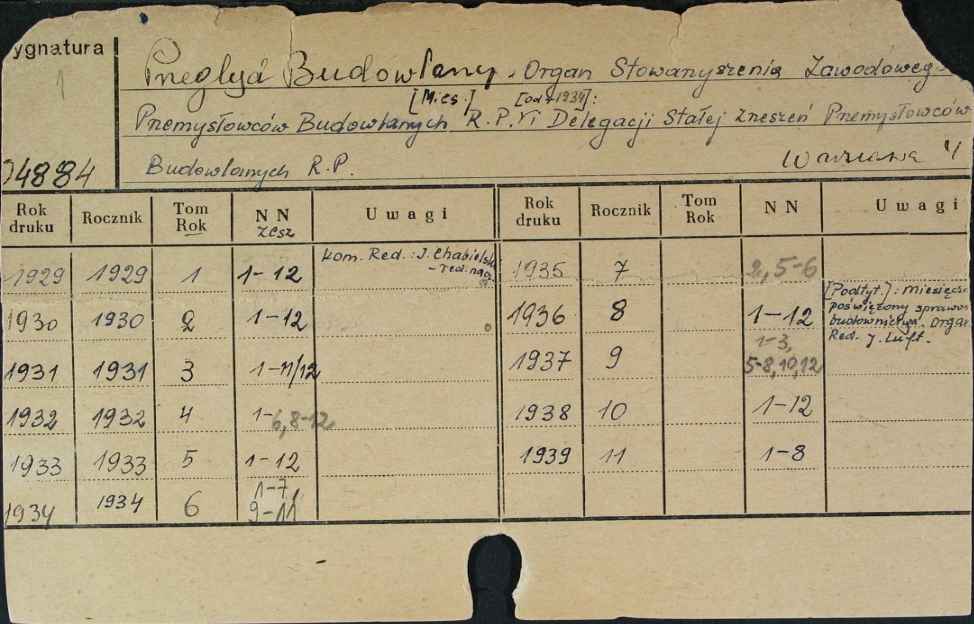 ygnatura
1
Przegląd Budowlany. Organ Stowarzyszenia Zawodoweg
[Mies.] [od 1934]:
Przemysłowców Budowlanych R.P. i Delegacji Stałej Zrzeszeń Przemysłowców
Budowlanych R.P. Warszawa
04884
Rok druku Rocznik Tom Rok NN zesz Uwagi Rok druku Rocznik Tom Rok NN Uwagi
1929 1929 1 1-12 kom. Red.: J. Chabielsk
- red. nacz.
1935 7 2, 5-6
1930 1930 2 1-12
1936 8 1-12 [Podtyt.]: miesięcz
poświęcony sprawom
budownictwa. Organ
Red. J. Luft.
1931 1931 3 1-11/12
1937 9 1-3,
5-8,10,12
1932 1932 4 1-6,8-12
1938 10 1-12
1933 1933 5 1-12
1939 11 1-8
1934 1934 6 1-7,
9-11